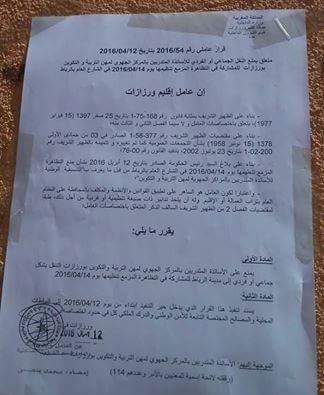 المملكة المغربية
وزارة الداخلية
قرار عاملي رقم 2016/54 بتاريخ 2016/04/12
متعلق بمنع التنقل الجماعي أو الفردي للأساتذة المتدربين بالمركز الجهوي لمهن التربية و التكوين
بورزازات للمشاركة في التظاهرة المزمع تنظيمها يوم 2016/04/14 في الشارع العام بالرباط
إن عامل إقليم ورزازات
- بناء على الظهير الشريف بمثابة قانون رقم 1-75-168 الصادر في 25 صفر 1397 (15 فبراير
1977)، المتعلق باختصاصات العامل، و لا سيما الفصل الثاني و الثالث منه؛
- بناء على مقتضيات الظهير الشريف رقم 1-58-377 الصادر في 03 من جمادى الأولى
1378 (15 نونبر 1958) بشأن التجمعات العمومية كما تم تغييره و تتميمه بالظهير الشريف رقم
1-02-200 بتاريخ 23 يوليوز 2002، بتنفيذ القانون رقم 00-76؛
- بناء على بلاغ السيد رئيس الحكومة الصادر بتاريخ 12 أبريل 2016 بشأن منع التظاهرة
المزمع تنظيمها يوم 2016/04/14 في الشارع العام بالرباط من قبل ما يعرف بـ"التنسيقية الوطنية
للأساتذة المتدربين بالمراكز الجهوية لمهن التربية و التكوين"؛
- واعتبارا لكون العامل هو الساهر على تطبيق القوانين والأنظمة والمكلف بالمحافظة على النظام
بتراب العمالة أو الإقليم وله أن يتخذ تدابير ذات صبغة تنظيمية أو فردية من أجل ذلك، طبقا
لمقتضيات الفصل 2 من الظهير الشريف السالف الذكر المتعلق باختصاصات العامل؛
يقرر ما يلي:
المادة الأولى:
يمنع على الأساتذة المتدربين بالمركز الجهوي لمهن التربية والتكوين بورزازات التنقل بشكل
جماعي أو فردي إلى مدينة الرباط للمشاركة في التظاهرة المزمع تنظيمها يوم 2016/04/14
المادة الثانية:
يسند تنفيذ هذا القرار الذي يدخل حيز التنفيذ ابتداء من يوم 2016/04/12 إلى السلطات
المحلية والمصالح المختصة التابعة للأمن الوطني والدرك الملكي كل في حدود اختصاصاته
ورزازات في
12
2016
الموجهة إليهم: الأساتذة المتدربين بالمركز الجهوي لمهن التربية والتكوين بورزازات
(رفقته لائحة إسمية للمعنيين بالأمر وعددهم 114)